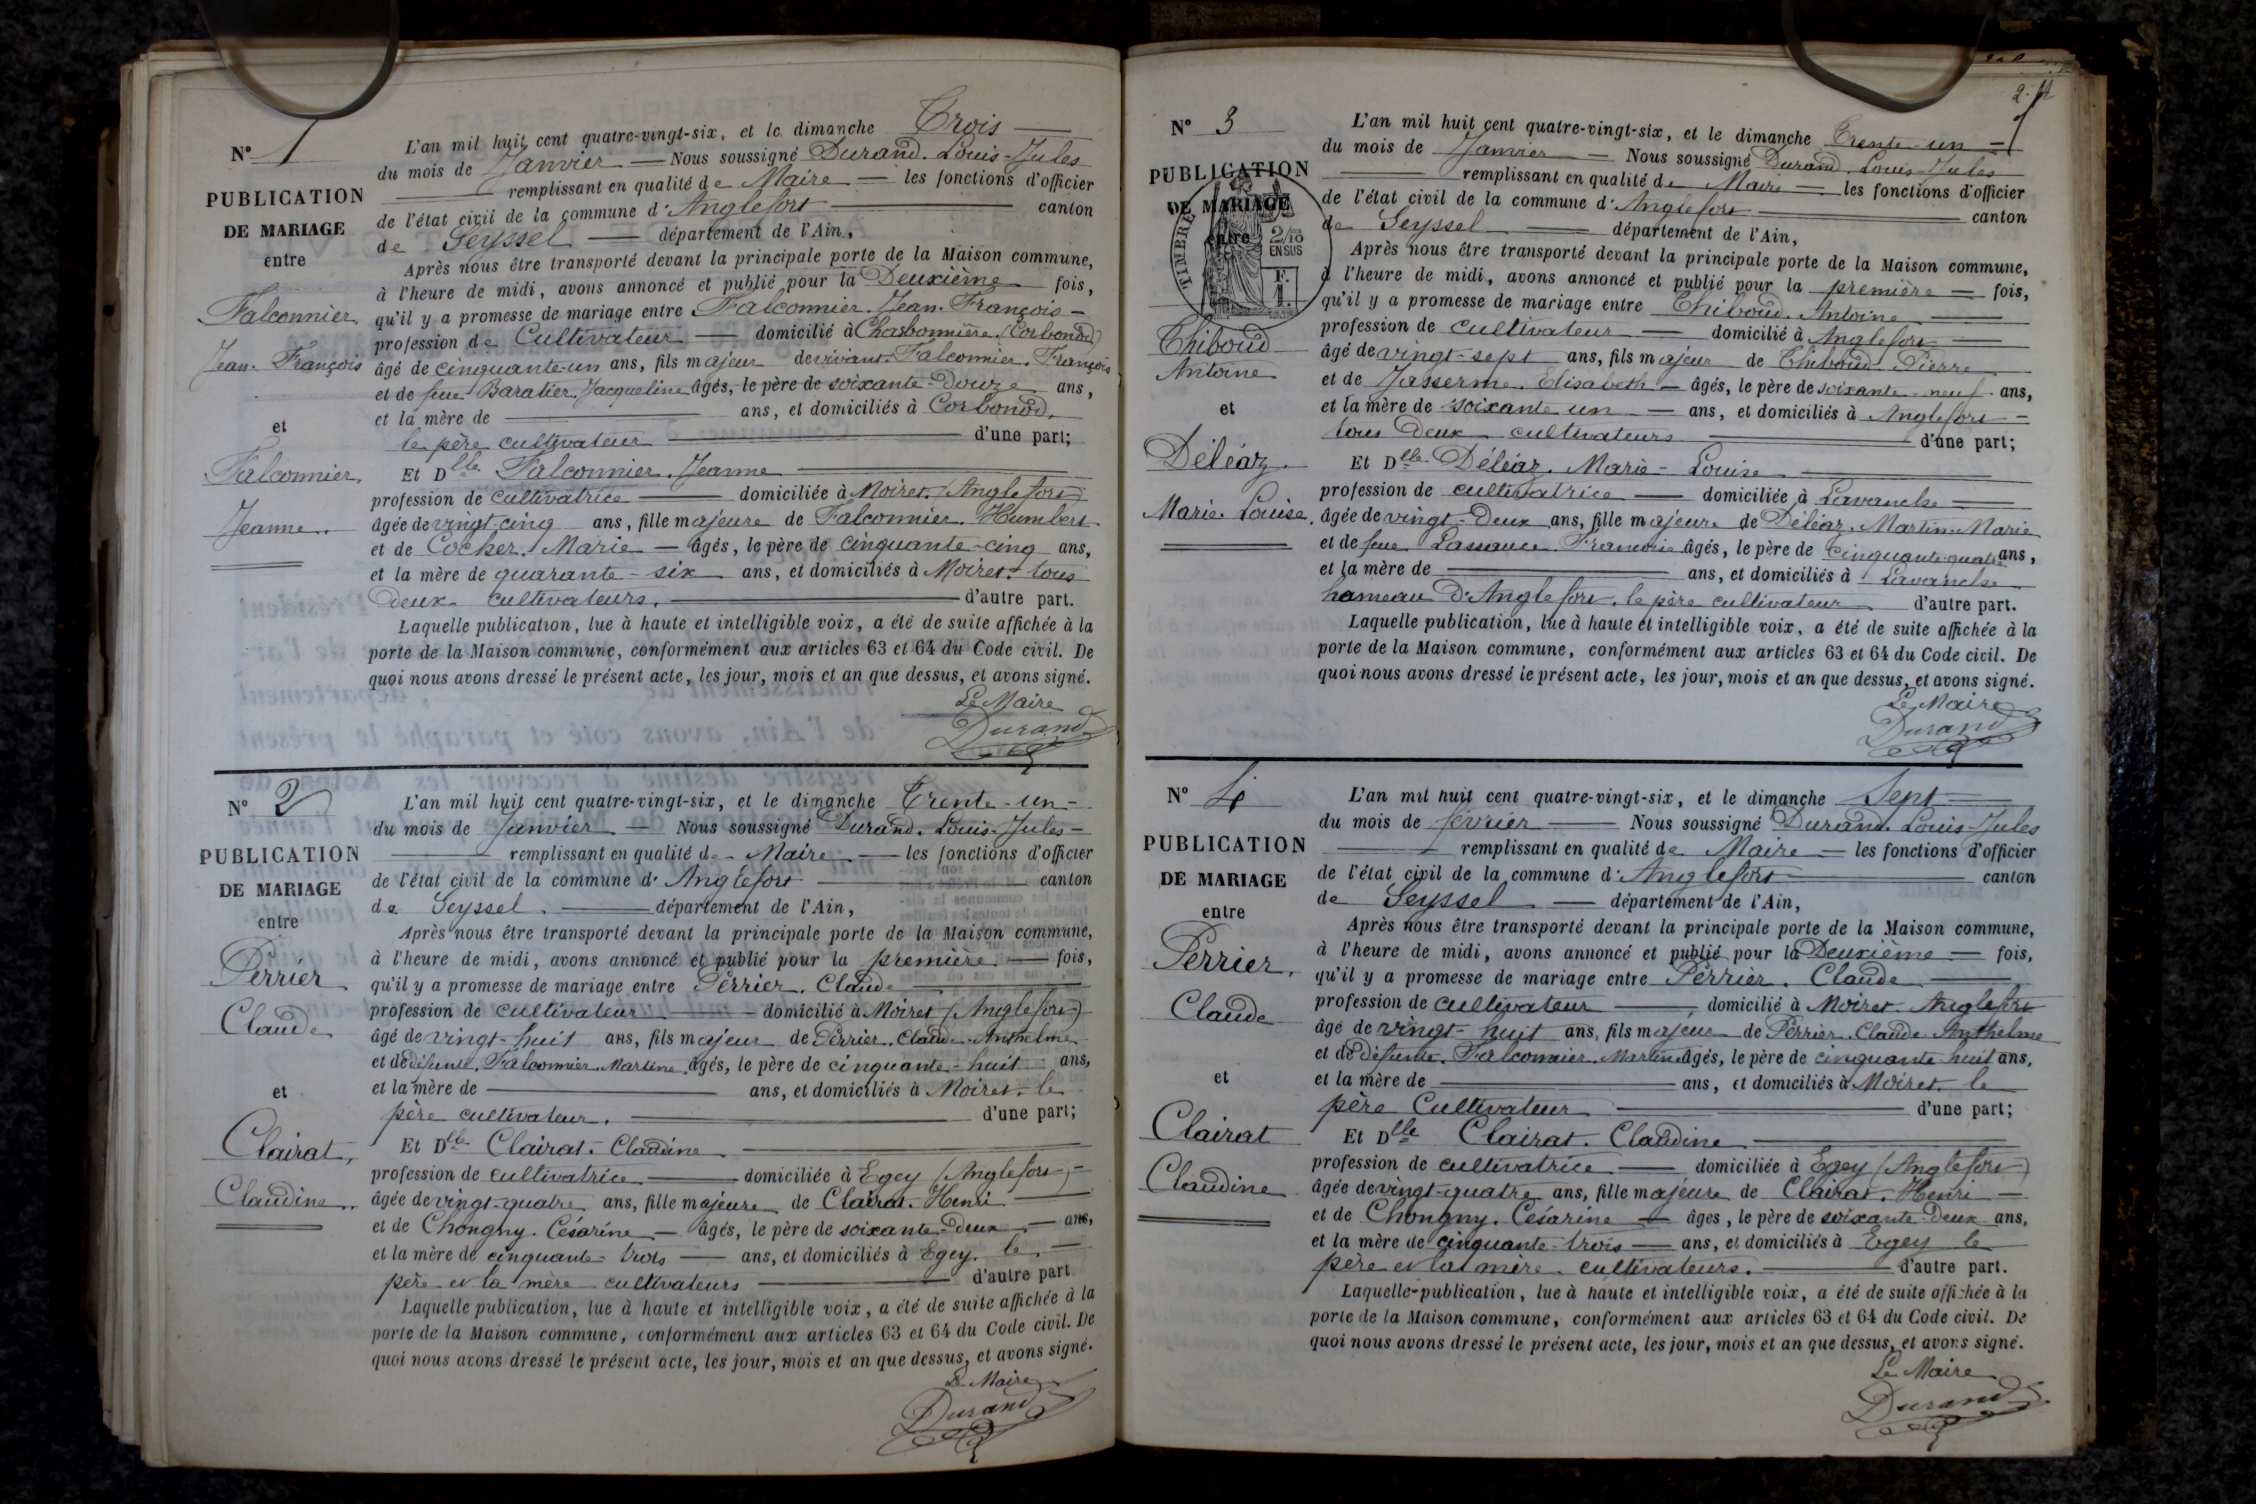 N° 1
PUBLICATION
DE MARIAGE
entre
Falconnier
Jean-François
et
Falconnier
Jeanne
L'an mil huit cent quatre-vingt-six, et le dimanche Trois
du mois de Janvier — Nous soussigné Durand. Louis-Jules
remplissant en qualité de Maire — les fonctions d'officier
de l'état civil de la commune d'Anglefort — canton
de Seyssel — département de l'Ain,
Après nous être transporté devant la principale porte de la Maison commune,
à l'heure de midi, avons annoncé et publié pour la Deuxième fois,
qu'il y a promesse de mariage entre Falconnier. Jean-François —
profession de Cultivateur — domicilié à Charbonnière (Corbonod)
âgé de cinquante-un ans, fils majeur de vivant Falconnier. François
et de feue Baratier Jacqueline âgés, le père de soixante-douze ans,
et la mère de — ans, et domiciliés à Corbonod.
le père cultivateur — d'une part;
Et Dlle Falconnier. Jeanne —
profession de cultivatrice — domiciliée à Moiret (Anglefort)
âgée de vingt-cinq ans, fille majeure de Falconnier. Humbert
et de Cocher. Marie — âgés, le père de cinquante-cinq ans,
et la mère de quarante-six ans, et domiciliés à Moiret. tous
deux cultivateurs. — d'autre part.
Laquelle publication, lue à haute et intelligible voix, a été de suite affichée à la
porte de la Maison commune, conformément aux articles 63 et 64 du Code civil. De
quoi nous avons dressé le présent acte, les jour, mois et an que dessus, et avons signé.
Le Maire
Durand
N° 2
PUBLICATION
DE MARIAGE
entre
Perrier
Claude
et
Clairat,
Claudine
L'an mil huit cent quatre-vingt-six, et le dimanche Trente-un —
du mois de Janvier — Nous soussigné Durand. Louis-Jules —
remplissant en qualité de Maire — les fonctions d'officier
de l'état civil de la commune d'Anglefort — canton
de Seyssel. — département de l'Ain,
Après nous être transporté devant la principale porte de la Maison commune,
à l'heure de midi, avons annoncé et publié pour la première — fois,
qu'il y a promesse de mariage entre Perrier. Claude —
profession de cultivateur — domicilié à Moiret (Anglefort)
âgé de vingt-huit ans, fils majeur de Perrier. Claude Anthelme
et de défunte. Falconnier. Martine. âgés, le père de cinquante-huit ans,
et la mère de — ans, et domiciliés à Moiret. le
père cultivateur. — d'une part;
Et Dlle Clairat. Claudine —
profession de cultivatrice — domiciliée à Egey (Anglefort) —
âgée de vingt-quatre ans, fille majeure de Clairat. Henri
et de Chongny. Césarine — âgés, le père de soixante-deux — ans,
et la mère de cinquante-trois — ans, et domiciliés à Egey. le —
père et la mère cultivateurs — d'autre part.
Laquelle publication, lue à haute et intelligible voix, a été de suite affichée à la
porte de la Maison commune, conformément aux articles 63 et 64 du Code civil. De
quoi nous avons dressé le présent acte, les jour, mois et an que dessus, et avons signé.
Le Maire
Durand
N° 3
PUBLICATION
DE MARIAGE
entre
TIMBRE
2/10
EN SUS
Thiboud
Antoine
et
Déléaz
Marie-Louise.
L'an mil huit cent quatre-vingt-six, et le dimanche Trente-un —
du mois de Janvier — Nous soussigné Durand. Louis-Jules
remplissant en qualité de Maire — les fonctions d'officier
de l'état civil de la commune d'Anglefort — canton
de Seyssel — département de l'Ain,
Après nous être transporté devant la principale porte de la Maison commune,
à l'heure de midi, avons annoncé et publié pour la première — fois,
qu'il y a promesse de mariage entre Thiboud. Antoine —
profession de cultivateur — domicilié à Anglefort —
âgé de vingt-sept ans, fils majeur de Thiboud Pierre
et de Jasserme. Elisabeth — âgés, le père de soixante-neuf ans,
et la mère de soixante un — ans, et domiciliés à Anglefort —
tous deux cultivateurs — d'une part;
Et Dlle Déléaz. Marie-Louise —
profession de cultivatrice — domiciliée à Lavanche —
âgée de vingt-deux ans, fille majeure de Déléaz. Martin-Marie
et de feue Lassauce Francoise âgés, le père de cinquante-quatre ans,
et la mère de — ans, et domiciliés à Lavanche
hameau d'Anglefort. le père cultivateur — d'autre part.
Laquelle publication, lue à haute et intelligible voix, a été de suite affichée à la
porte de la Maison commune, conformément aux articles 63 et 64 du Code civil. De
quoi nous avons dressé le présent acte, les jour, mois et an que dessus, et avons signé.
Le Maire
Durand
N° 4
PUBLICATION
DE MARIAGE
entre
Perrier.
Claude
et
Clairat
Claudine
L'an mil huit cent quatre-vingt-six, et le dimanche Sept —
du mois de février — Nous soussigné Durand. Louis-Jules
remplissant en qualité de Maire — les fonctions d'officier
de l'état civil de la commune d'Anglefort — canton
de Seyssel — département de l'Ain,
Après nous être transporté devant la principale porte de la Maison commune,
à l'heure de midi, avons annoncé et publié pour la Deuxième — fois,
qu'il y a promesse de mariage entre Perrier. Claude —
profession de cultivateur — domicilié à Moiret Anglefort
âgé de vingt-huit ans, fils majeur de Perrier. Claude Anthelme
et de défunte. Falconnier. Martine âgés, le père de cinquante-huit ans,
et la mère de — ans, et domiciliés à Moiret le
père Cultivateur — d'une part;
Et Dlle Clairat. Claudine —
profession de cultivatrice — domiciliée à Egey (Anglefort)
âgée de vingt-quatre ans, fille majeure de Clairat. Henri —
et de Chongny. Césarine — âgés, le père de soixante-deux ans,
et la mère de cinquante-trois — ans, et domiciliés à Egey le
père et la mère cultivateurs. — d'autre part.
Laquelle publication, lue à haute et intelligible voix, a été de suite affichée à la
porte de la Maison commune, conformément aux articles 63 et 64 du Code civil. De
quoi nous avons dressé le présent acte, les jour, mois et an que dessus, et avons signé.
Le Maire
Durand